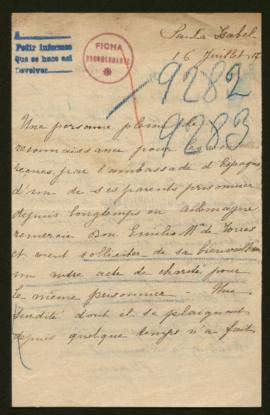 A
Pedir informes
Que se hace así
Devolver
FICHA
Santa Isabel
16 Juillet
9282
9283
Une personne pleine de
reconnaissance pour les
reçues, par l'ambassade d'Espagne
d'un de ses parents prisonnier
depuis longtemps en Allemagne
remercie Don Emilio Mª de Torres
et vient solliciter de sa bienveillance
un autre acte de charité pour
le même prisonnier - Une
surdité dont il se plaignait
depuis quelque temps n'a fait